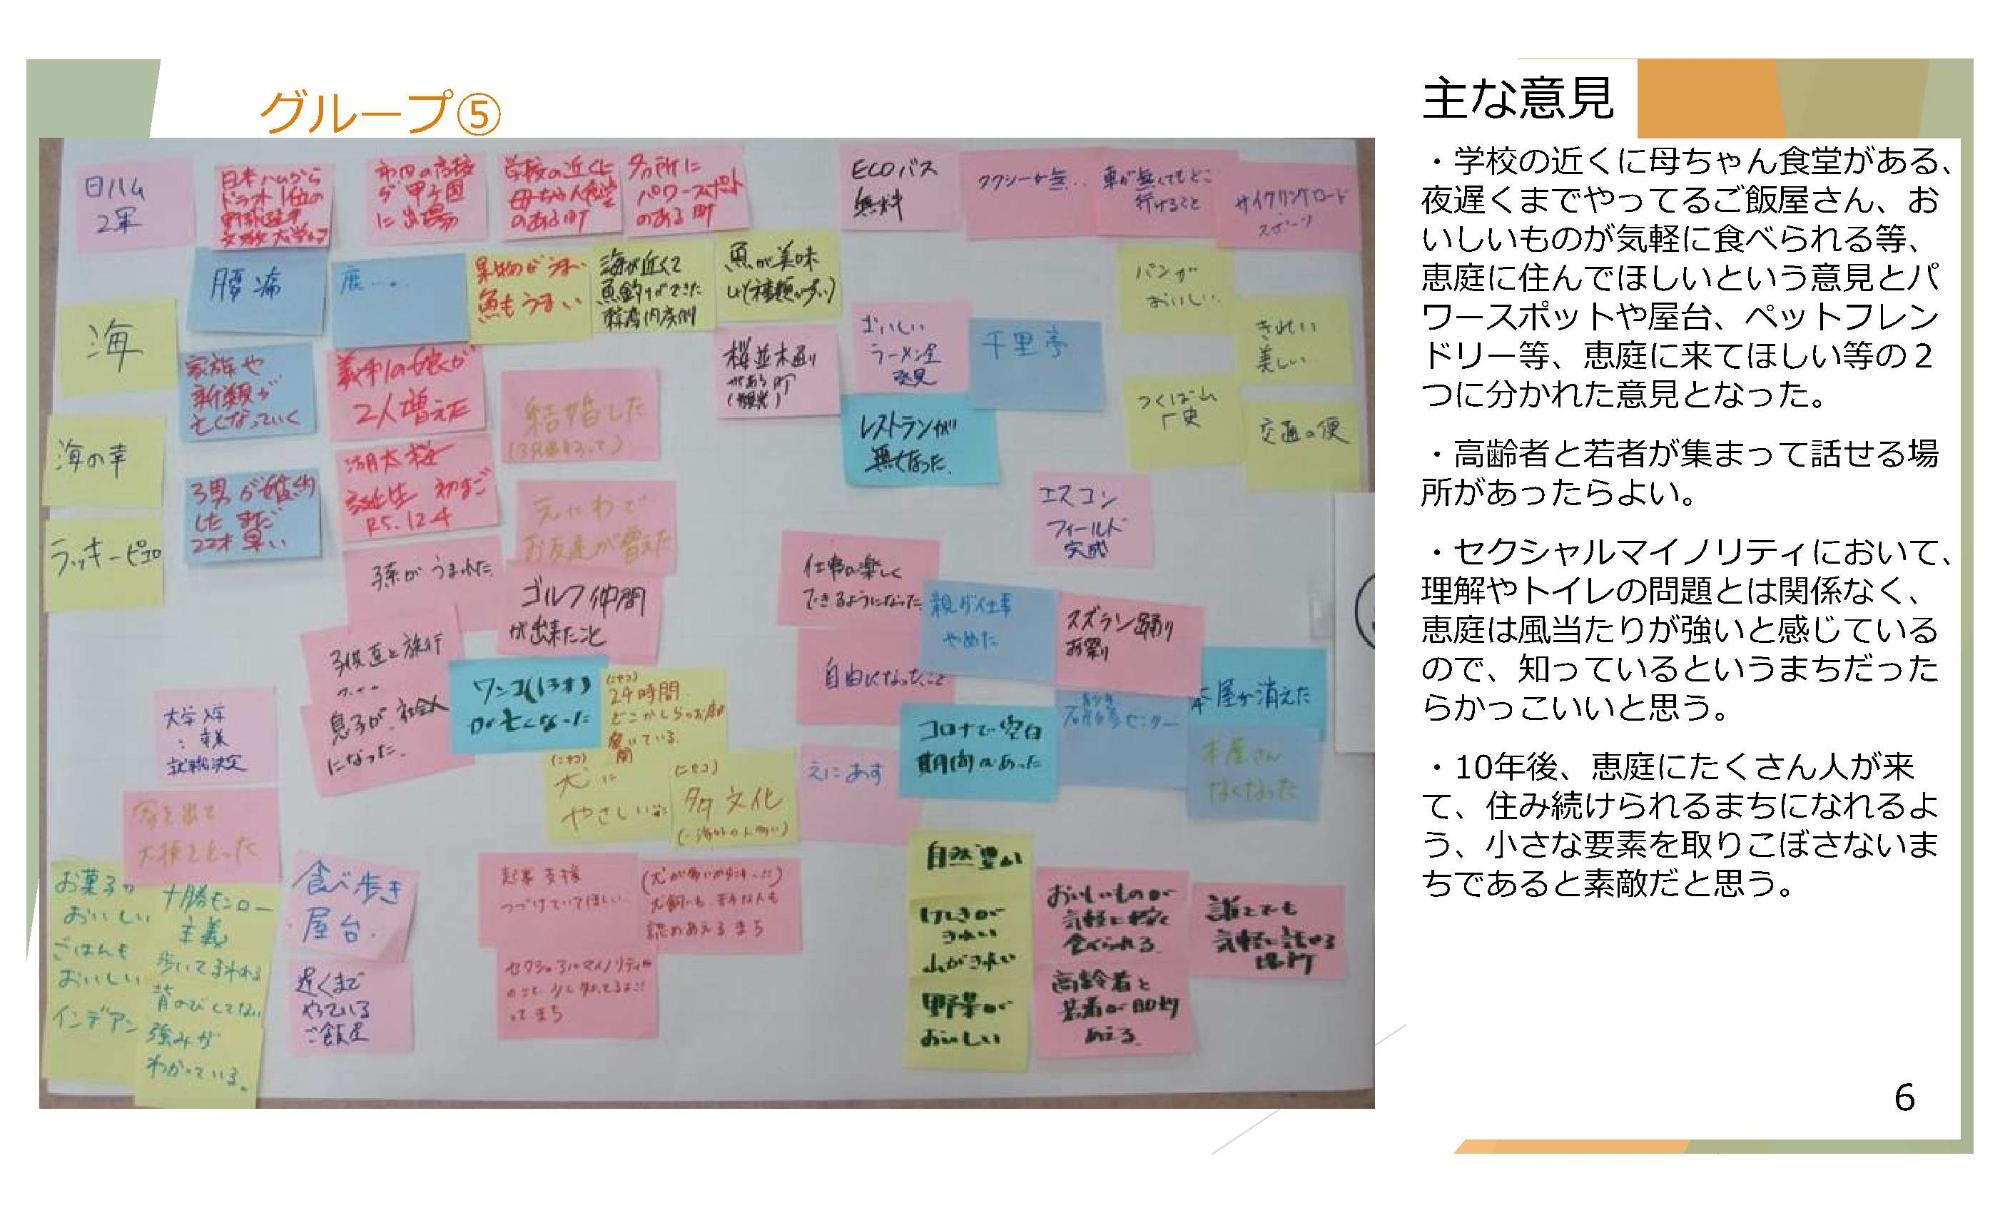 グループ⑤
日ハム
2軍
日本ハムから
ドラフト1位の
学校の近くに
母ちゃん食堂
のある町
パワースポット
のある町
ECOバス
無料
タクシーが無..
車が無くてもどこ
行けること
サイクリングロード
スポーツ
腰痛
鹿...。
果物がうまい
魚もうまい
海が近くて
魚釣りができた
魚が美味
しい(種類が多い)
パンが
おいしい
海
家族や
親類が
亡くなっていく
義弟の娘が
2人増えた
結婚した
桜並木通り
がある町
(観光)
おいしい
ラーメン屋
発見
千里亭
きれい
美しい
海の幸
つくば山
レストランが
無くなった
交通の便
3男が婚約
した まだ
22才 早い
誕生 初まご
R5.12.4
お友達が増えた
エスコン
フィールド
完成
ラッキーピエロ
孫がうまれた
ゴルフ仲間
が出来たこと
仕事が楽しく
できるようになった
親が仕事
やめた
スズラン踊り
お祭り
子供達と旅行
息子が、社会人
になった。
ワンコ(13才)
が亡くなった
(ニセコ)
24時間
どこかしらのお店
開いている。
自由になったこと
本屋が消えた
大学入学
就職決定
(ニセコ)
犬に
やさしい
(ニセコ)
多文化
えにあす
コロナで空白
期間があった
本屋さん
なくなった
お菓子が
おいしい
ごはんも
おいしい
インデアン
十勝モンロー
主義
背のびしてない
強みが
わかっている。
食べ歩き
・屋台.
遅くまで
やっている
ご飯屋
起業支援
つづけていてほしい..
認めあえるまち
セクシャルマイノリティ
自然豊か
けしきが
きれい
山がきれい
野菜が
おいしい
おいしいものが
気軽に
食べられる
高齢者と
誰とでも
気軽に話せる
場所
主な意見
・学校の近くに母ちゃん食堂がある、
夜遅くまでやってるご飯屋さん、お
いしいものが気軽に食べられる等、
恵庭に住んでほしいという意見とパ
ワースポットや屋台、ペットフレン
ドリー等、恵庭に来てほしい等の２
つに分かれた意見となった。
・高齢者と若者が集まって話せる場
所があったらよい。
・セクシャルマイノリティにおいて、
理解やトイレの問題とは関係なく、
恵庭は風当たりが強いと感じている
ので、知っているというまちだった
らかっこいいと思う。
・10年後、恵庭にたくさん人が来
て、住み続けられるまちになれるよ
う、小さな要素を取りこぼさないま
ちであると素敵だと思う。
6